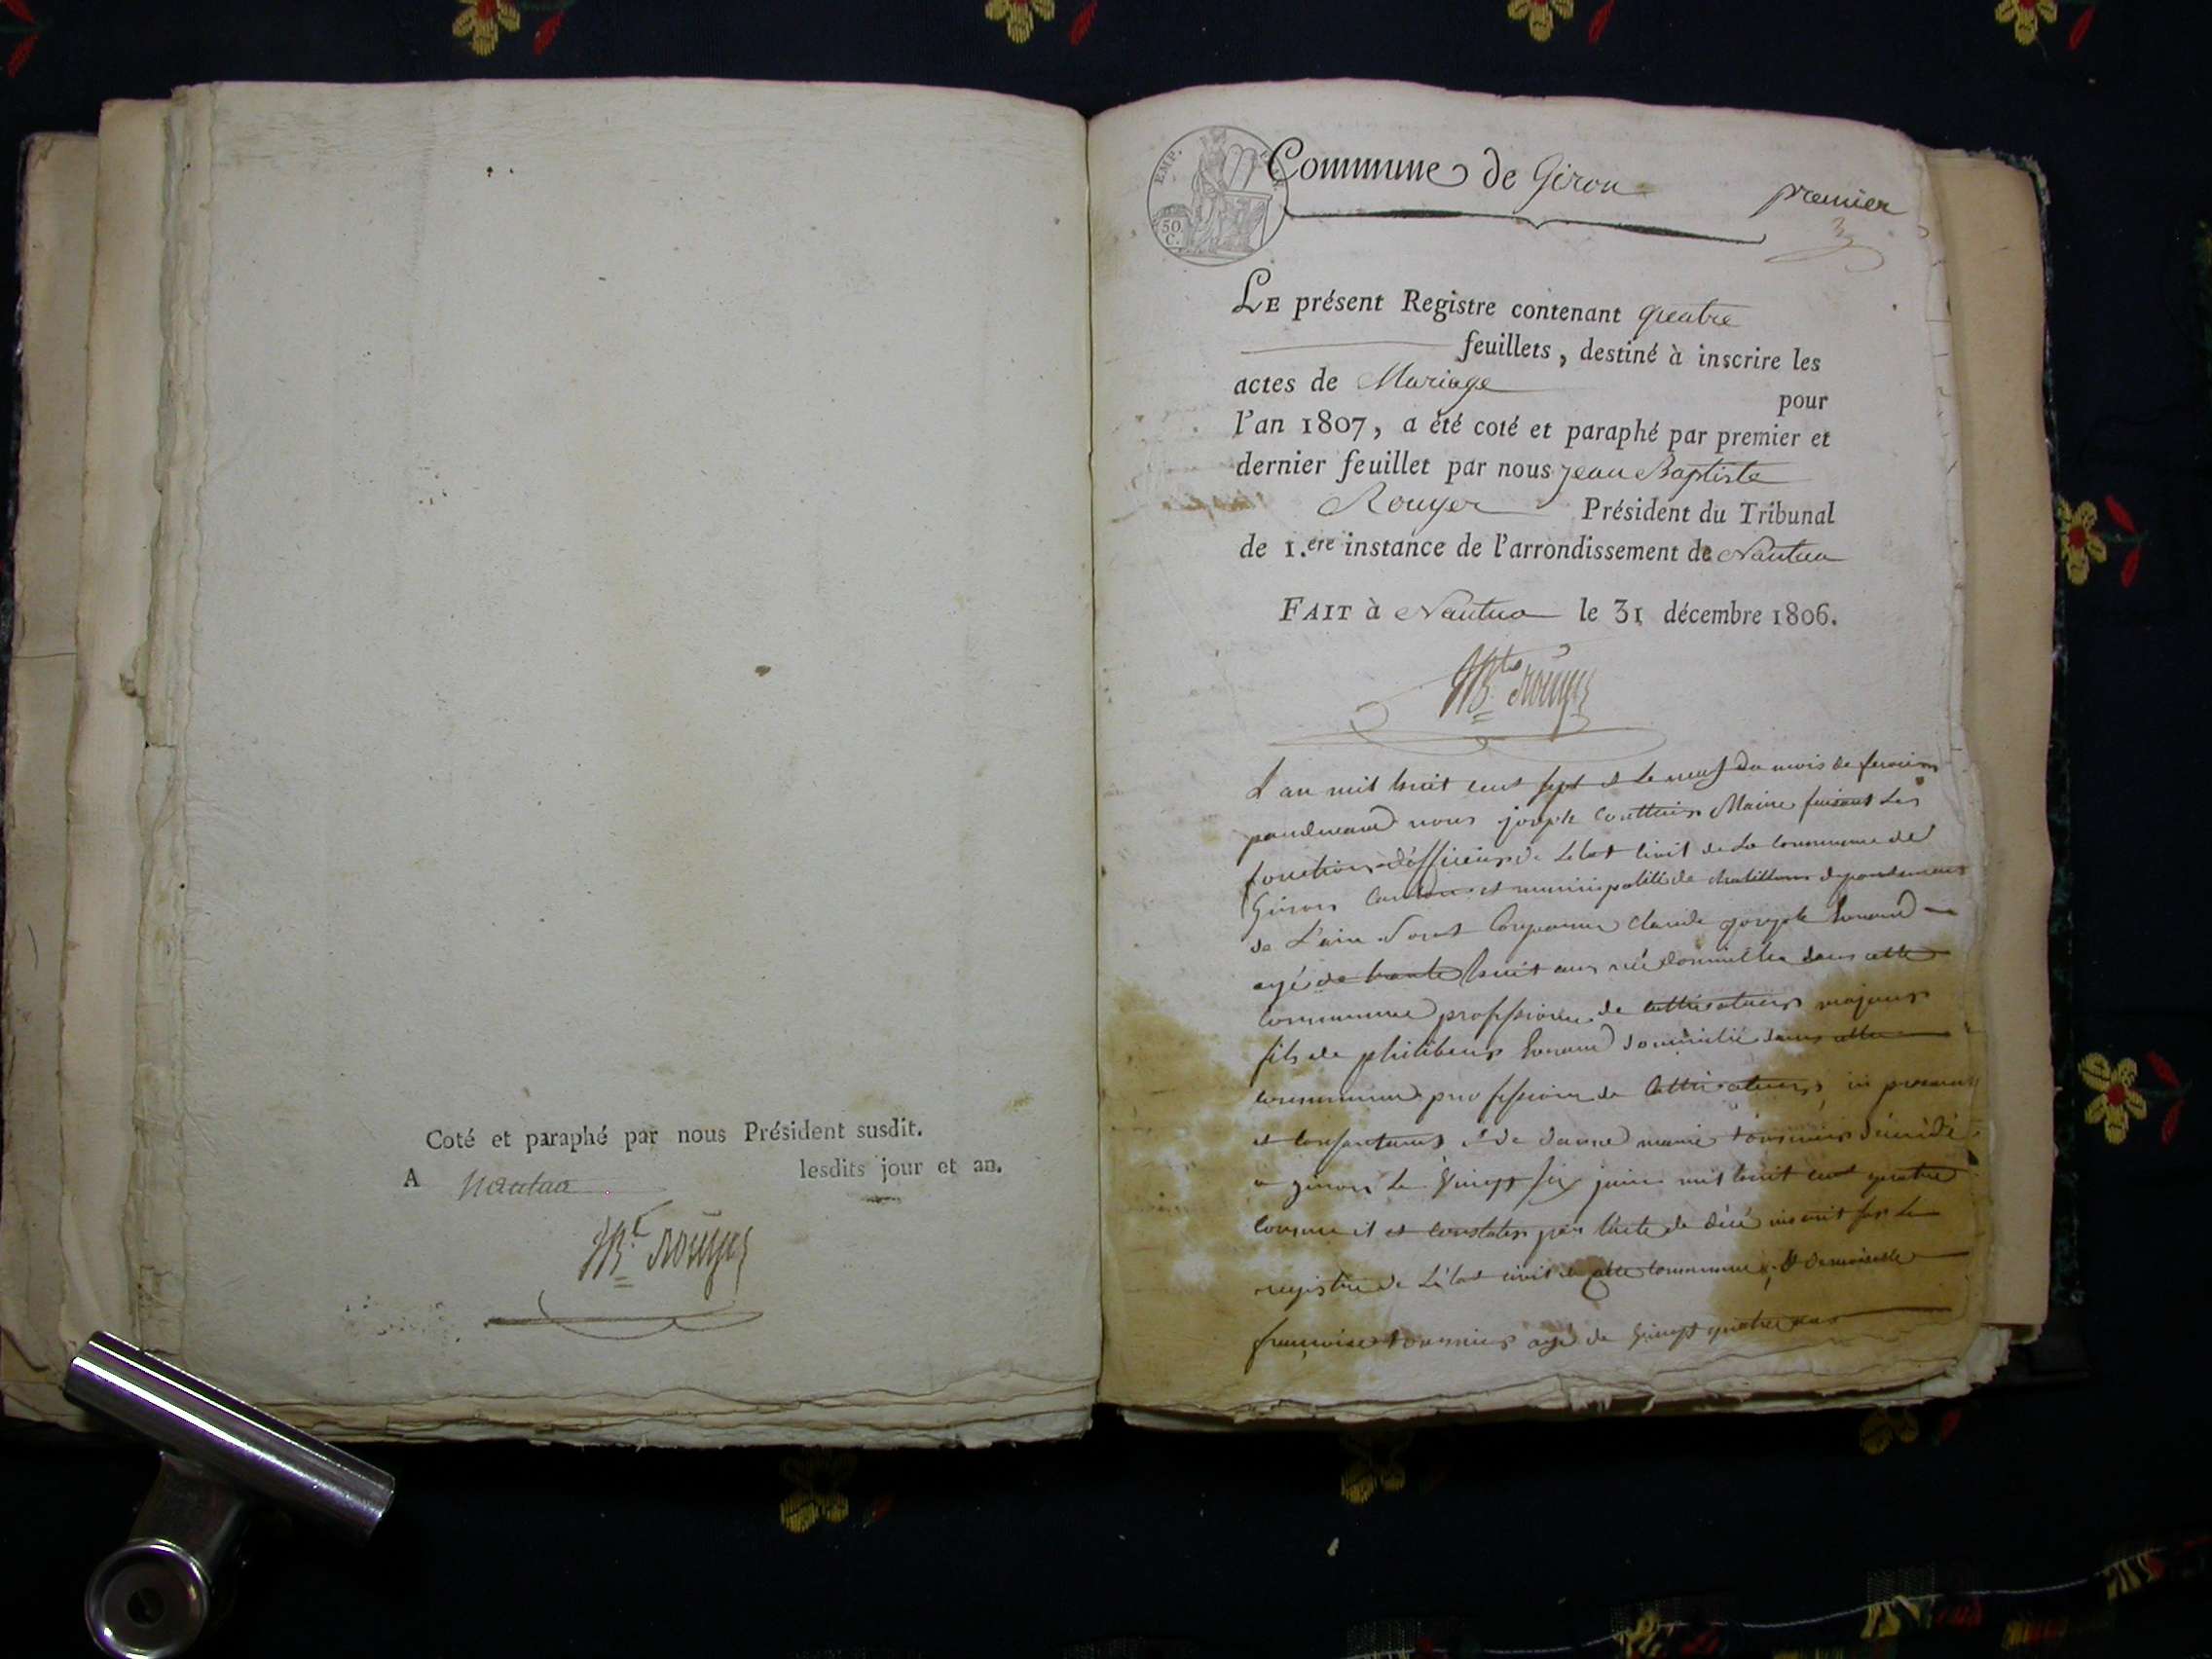 Coté et paraphé par nous Président susdit.
A Nantua lesdits jour et an.
JBte Rouyer
EMP. FRAN.
50.
C.
Commune de Giron
premier
LE présent Registre contenant quatre
feuillets, destiné à inscrire les
actes de Mariage
pour
l'an 1807, a été coté et paraphé par premier et
dernier feuillet par nous jean Baptiste
Rouyer Président du Tribunal
de 1.ere instance de l'arrondissement de Nantua
FAIT à Nantua le 31 décembre 1806.
JBte Rouyer
L'an mil huit cent sept et le neuf du mois de fevrier
nous joseph Maire faisant les
fonctions d'officier de Letat Civil de la Commune de
Giron Canton et municipalité de chatillon departement
de L'ain Sont Comparus Claude joseph
agé de trente huit ans né domicilié dans cette
Commune profession de majeur
fils de philibert domicilié dans cette
commune profession de ici present
et Consentant et de marie
a giron Le Vingt six juin mil huit cent quatre
Comme il est par lacte de décé inscrit sur Le
registre de L'état civil de cette Commune, Et demoiselle
françoise agé de Vingt quatre ans